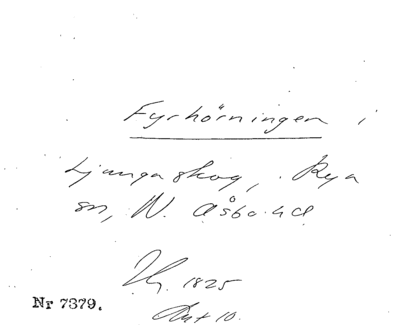 Fyrhörningen i
Ljungaskog, Rya
sn, N. Åsbo hd
Hg. 1825
Nr 7379.
Akt 10.